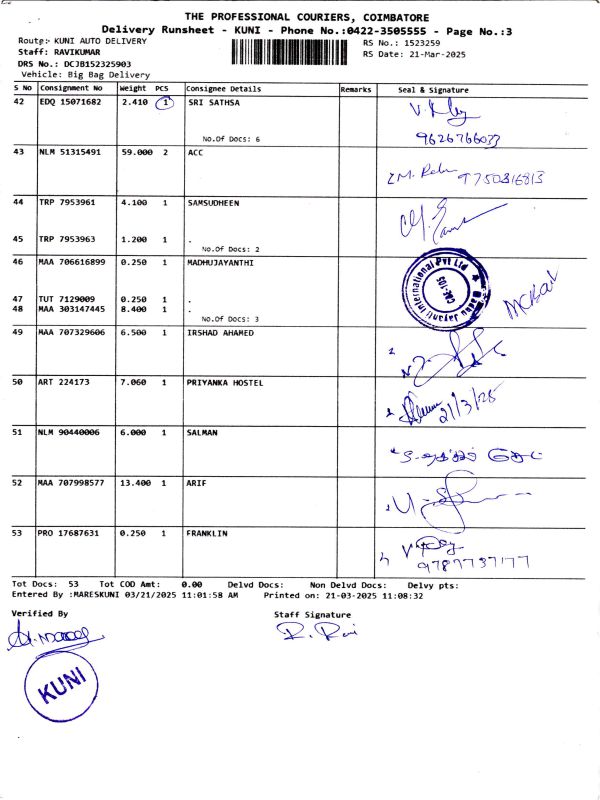 THE PROFESSIONAL COURIERS, COIMBATORE
Delivery Runsheet - KUNI - Phone No.:0422-3505555 - Page No.:3
Route:- KUNI AUTO DELIVERY RS No.: 1523259
Staff: RAVIKUMAR RS Date: 21-Mar-2025
DRS No.: DCJB152325903
Vehicle: Big Bag Delivery
S No Consignment No Weight PCS Consignee Details Remarks Seal & Signature
42 EDQ 15071682 2.410 1 SRI SATHSA
No.Of Docs: 6 9626766033
43 NLM 51315491 59.000 2 ACC
9750316813
44 TRP 7953961 4.100 1 SAMSUDHEEN
45 TRP 7953963 1.200 1 .
No.Of Docs: 2
46 MAA 706616899 0.250 1 MADHUJAYANTHI
47 TUT 7129009 0.250 1 .
48 MAA 303147445 8.400 1 .
No.Of Docs: 3
International Pvt Ltd
CBE-105
49 MAA 707329606 6.500 1 IRSHAD AHAMED
50 ART 224173 7.060 1 PRIYANKA HOSTEL
21/3/25
51 NLM 90440006 6.000 1 SALMAN
52 MAA 707998577 13.400 1 ARIF
53 PRO 17687631 0.250 1 FRANKLIN
9787737177
Tot Docs: 53 Tot COD Amt: 0.00 Delvd Docs: Non Delvd Docs: Delvy pts:
Entered By :MARESKUNI 03/21/2025 11:01:58 AM Printed on: 21-03-2025 11:08:32
Verified By Staff Signature
R. Ravi
KUNI